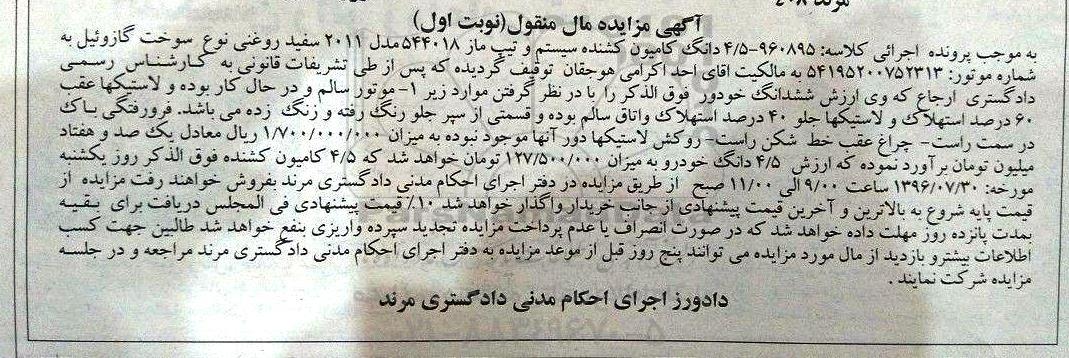 مرند ۴۰۸
آگهی مزایده مال منقول(نوبت اول)
به موجب پرونده اجرائی کلاسه: ۹۶۰۸۹۵-۴/۵ دانگ کامیون کشنده سیستم و تیپ ماز ۵۴۴۰۱۸مدل ۲۰۱۱ سفید روغنی نوع سوخت گازوئیل به
شماره موتور: ۵۴۱۹۵۲۰۰۷۵۲۳۱۳ به مالکیت اقای احد اکرامی هوجقان توقیف گردیده که پس از طی تشریفات قانونی به کارشناس رسمی
دادگستری ارجاع که وی ارزش ششدانگ خودور فوق الذکر را با در نظر گرفتن موارد زیر ۱-موتور سالم و در حال کار بوده و لاستیکها عقب
۶۰ درصد استهلاک و لاستیکها جلو ۴۰ درصد استهلاک واتاق سالم بوده و قسمتی از سپر جلو رنگ رفته و زنگ زده می باشد. فرورفتگی باک
در سمت راست- چراغ عقب خط شکن راست- روکش لاستیکها دور آنها موجود نبوده به میزان ۱/۷۰۰/۰۰۰/۰۰۰ ریال معادل یک صد و هفتاد
میلیون تومان برآورد نموده که ارزش ۴/۵ دانگ خودرو به میزان ۱۲۷/۵۰۰/۰۰۰ تومان خواهد شد که ۴/۵ کامیون کشنده فوق الذکر روز یکشنبه
مورخه: ۱۳۹۶/۰۷/۳۰ ساعت ۹/۰۰ الی ۱۱/۰۰ صبح از طریق مزایده در دفتر اجرای احکام مدنی دادگستری مرند بفروش خواهند رفت مزایده از
قیمت پایه شروع به بالاترین و آخرین قیمت پیشنهادی از جانب خریدار واگذار خواهد شد ۱۰٪ قیمت پیشنهادی فی المجلس دریافت برای بقیه
بمدت پانزده روز مهلت داده خواهد شد که در صورت انصراف یا عدم پرداخت مزایده تجدید سپرده واریزی بنفع خواهد شد طالبین جهت کسب
اطلاعات بیشترو بازدید از مال مورد مزایده می توانند پنج روز قبل از موعد مزایده به دفتر اجرای احکام مدنی دادگستری مرند مراجعه و در جلسه
مزایده شرکت نمایند .
دادورز اجرای احکام مدنی دادگستری مرند